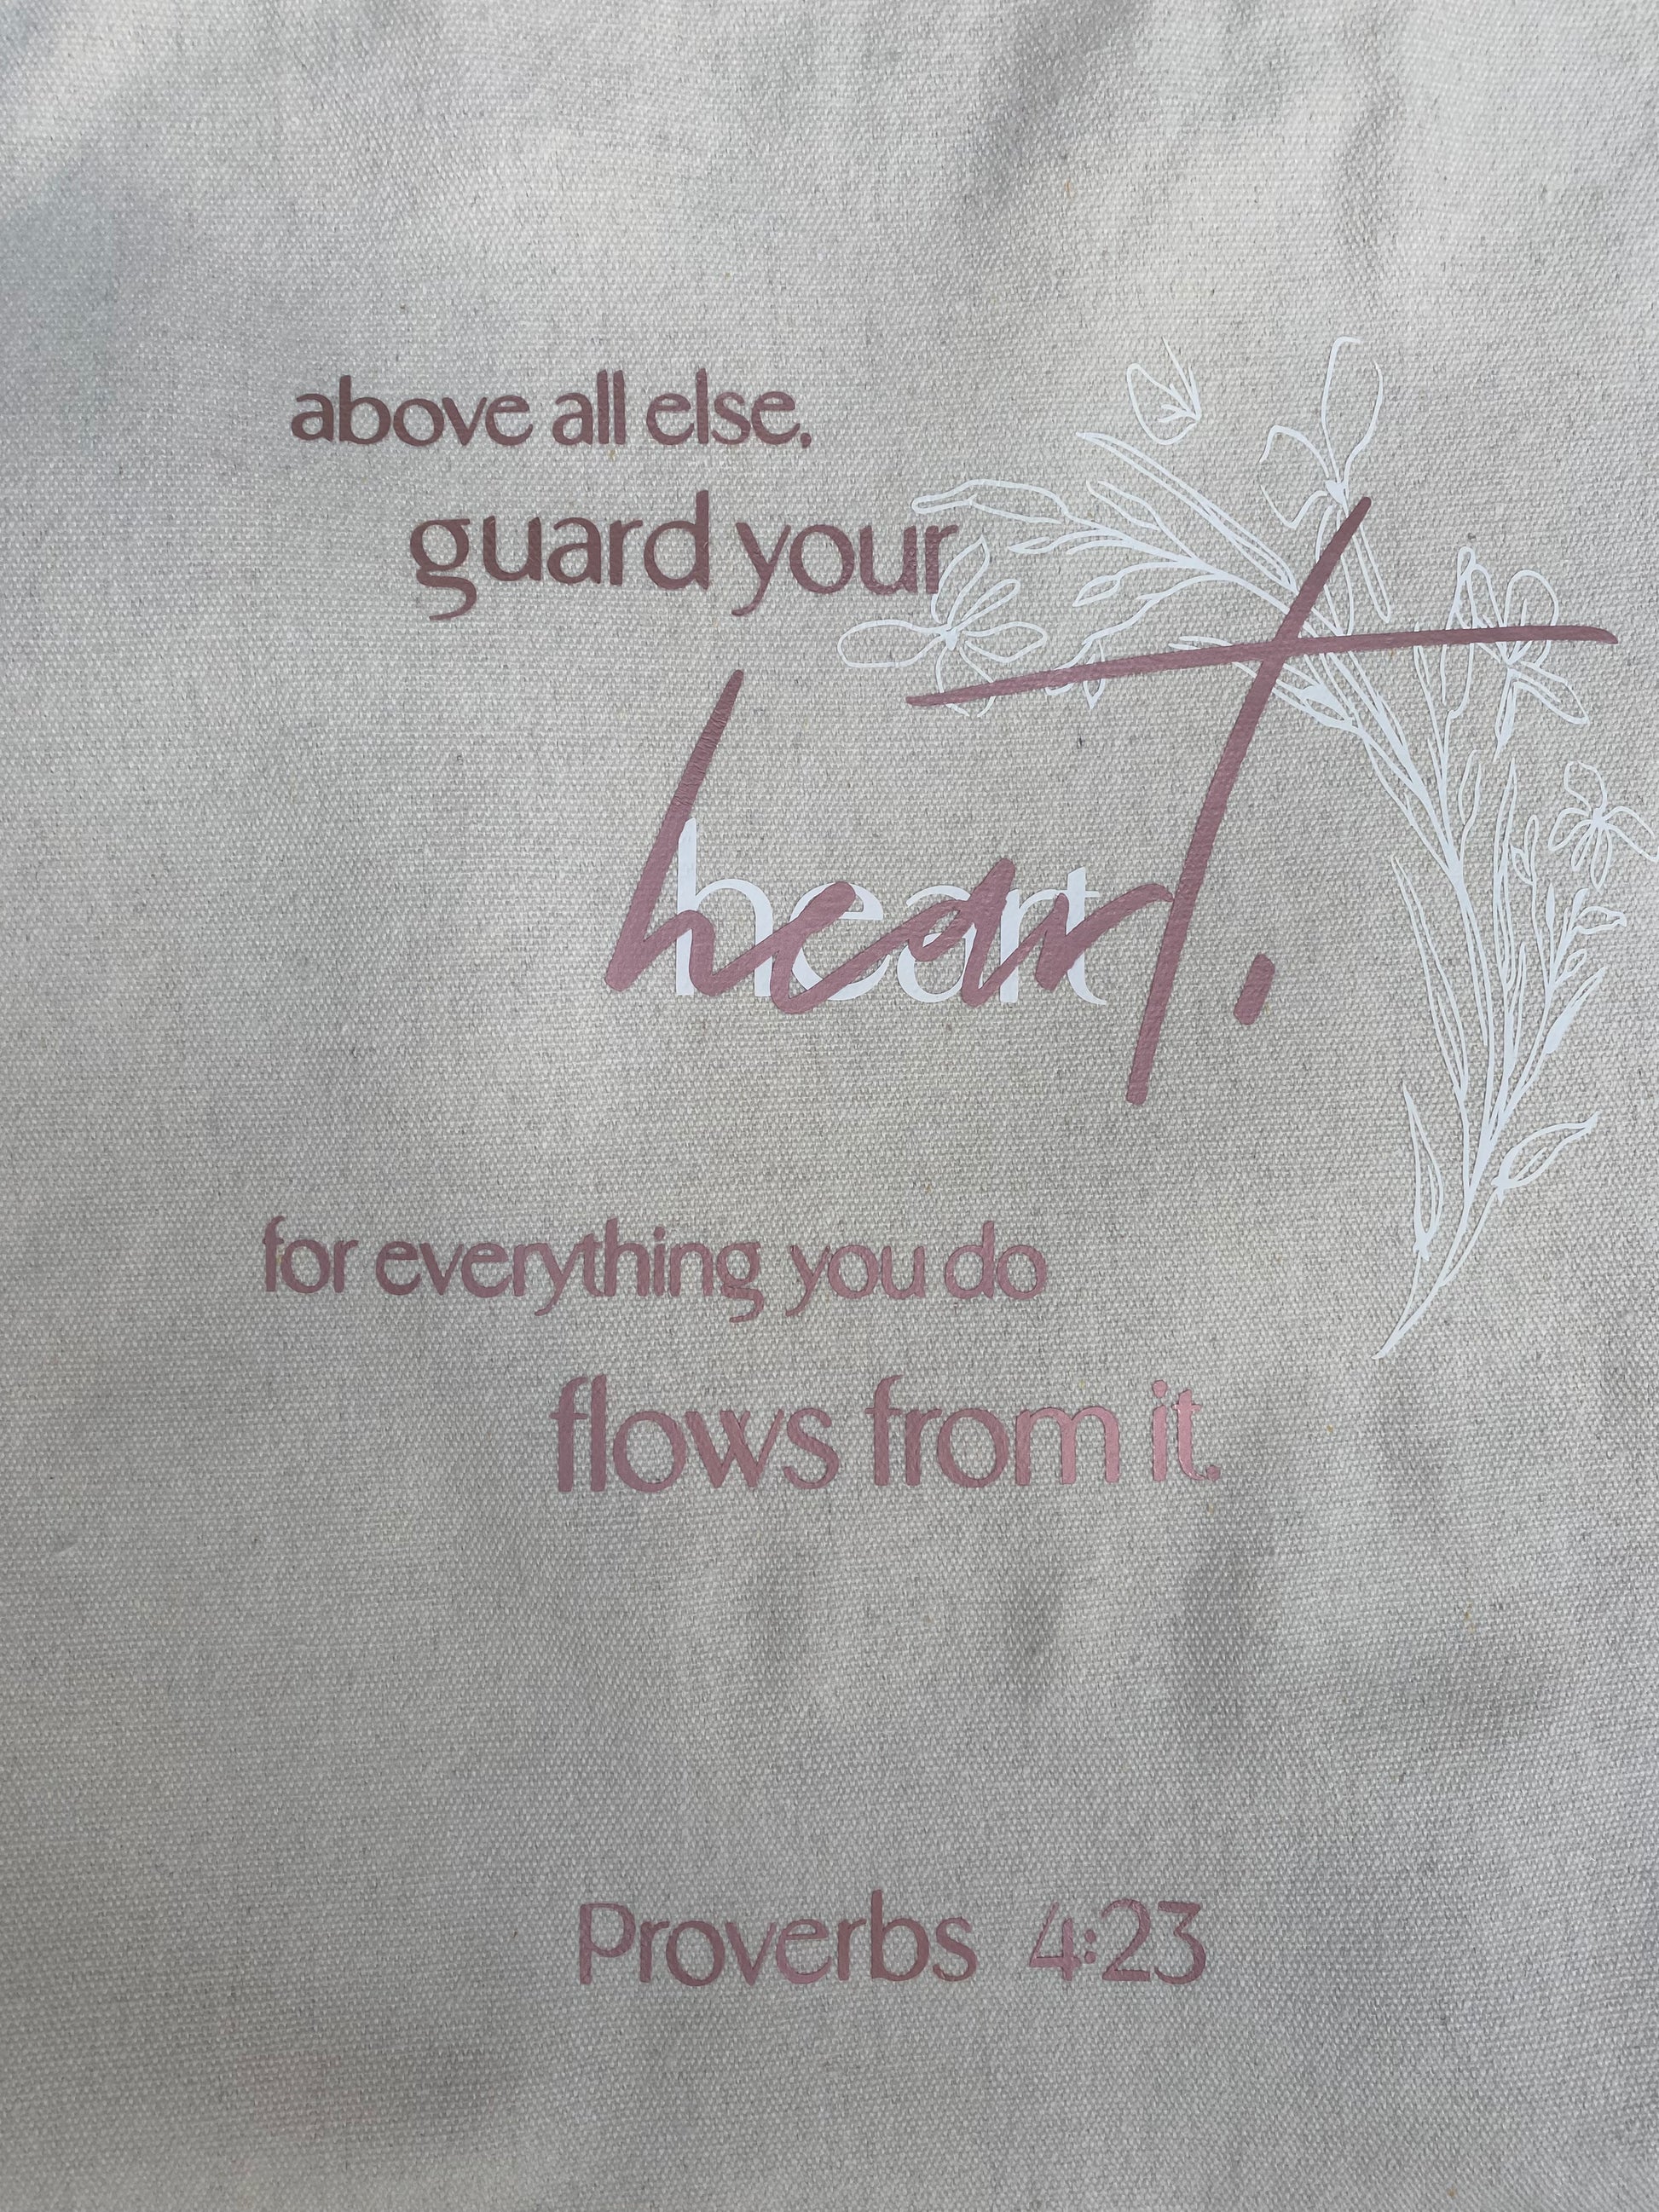 above all else,
guard your
heart
heart.
for everything you do
flows from it.
Proverbs 4:23